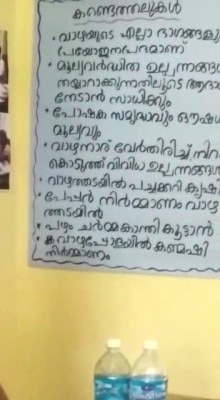 കണ്ടെത്തലുകൾ
• വാഴയുടെ എല്ലാ ഭാഗങ്ങളു
പ്രയോജനപ്രദമാണ്
• മൂല്യവർദ്ധിത ഉല്പന്നങ്ങൾ
തയ്യാറാക്കുന്നതിലൂടെ ആദാ
നേടാൻ സാധിക്കും
• പോഷക സമൃദ്ധവും ഔഷധ
മൂല്യവും
• വാഴനാര് വേർതിരിച്ച് നിറ
കൊടുത്ത് വിവിധ ഉല്പന്നങ്ങൾ
• വാഴത്തടയിൽ പച്ചക്കറി കൃഷി
• പേപ്പർ നിർമ്മാണം വാഴ
ത്തടയിൽ
• പഴം ചർമ്മകാന്തി കൂട്ടാൻ
• വാഴപ്പോളയിൽ കണ്മഷി
നിർമ്മാണം